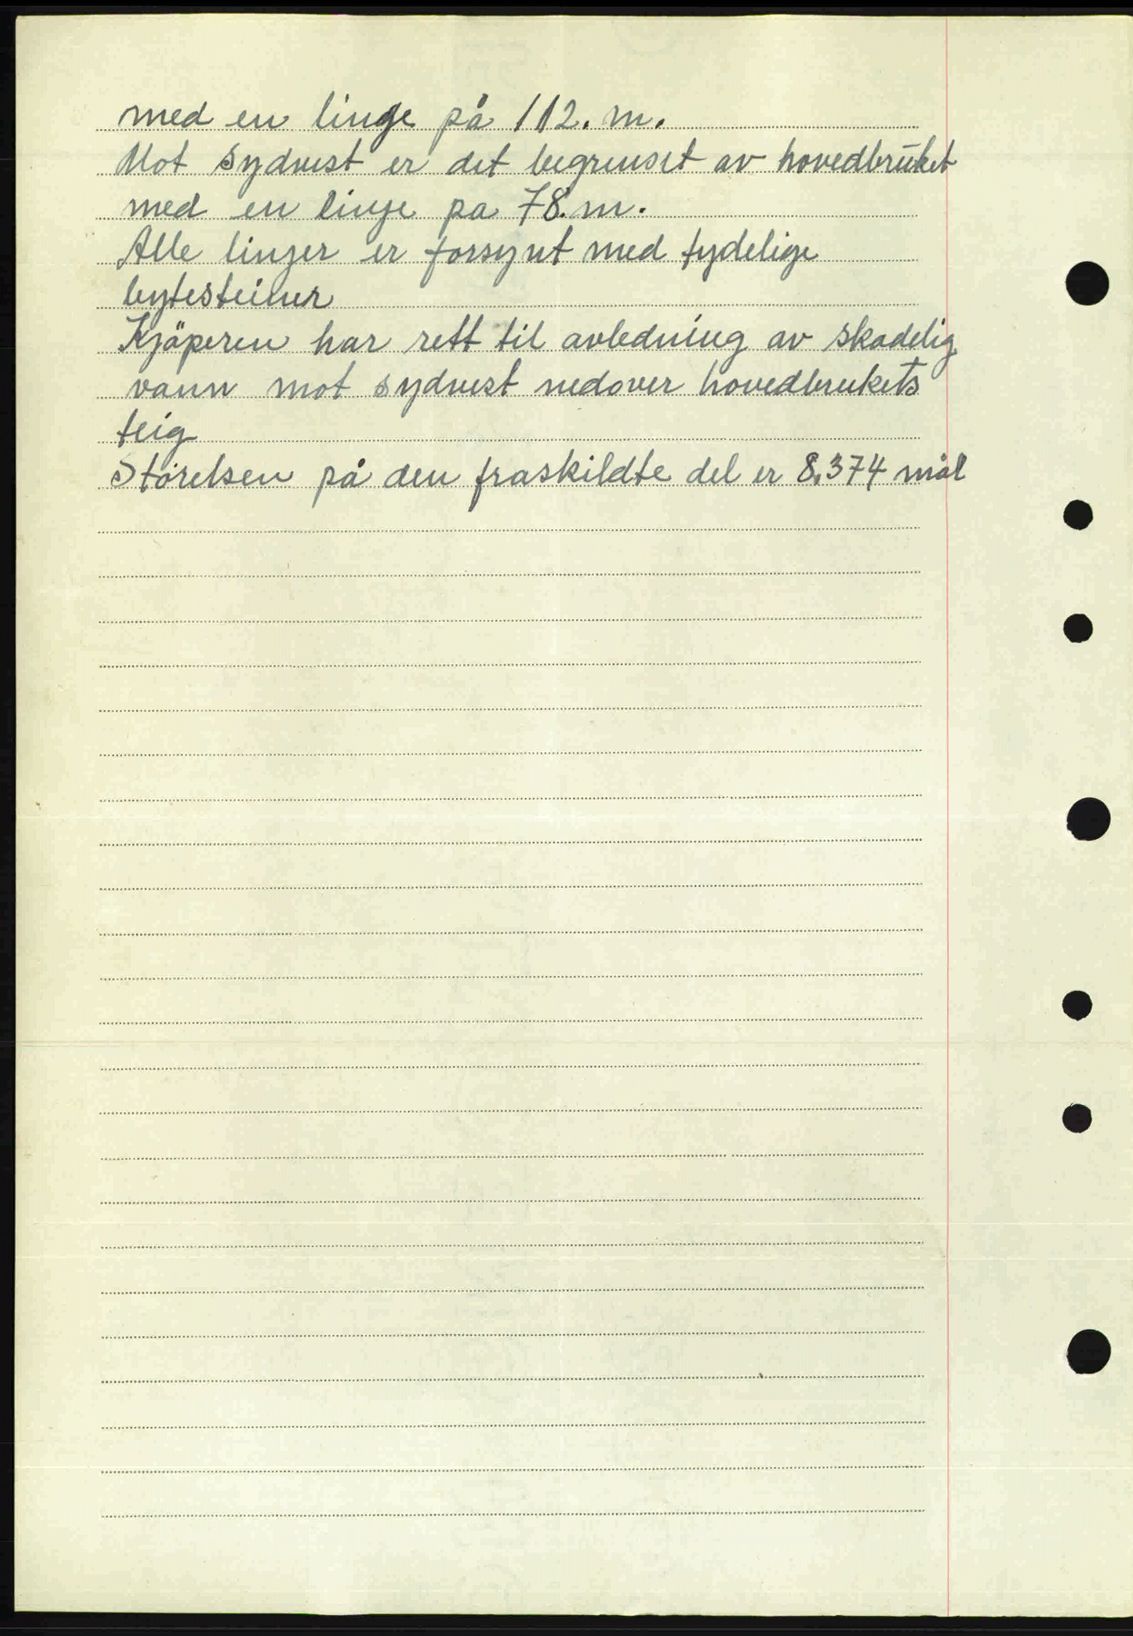 med en linje på 112. m.
Mot sydvest er det begrenset av hovedbruket
med en linje pa 78. m.
Alle linjer er forsynt med tydelige
bytesteiner
Kjöperen har rett til avledning av skadelig
vann mot sydvest nedover hovedbrukets
teig
Störelsen på den fraskildte del er 8,374 mål